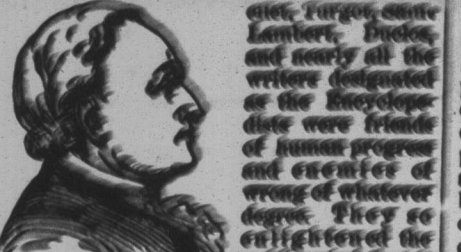 cier, Turgot, Saint
Lambert, Ducks,
and nearly all the
writers designated
as the Encyclope
dists were friends
of human progress
and enemies of
wrong of whatever
degree. They so
enlightened the